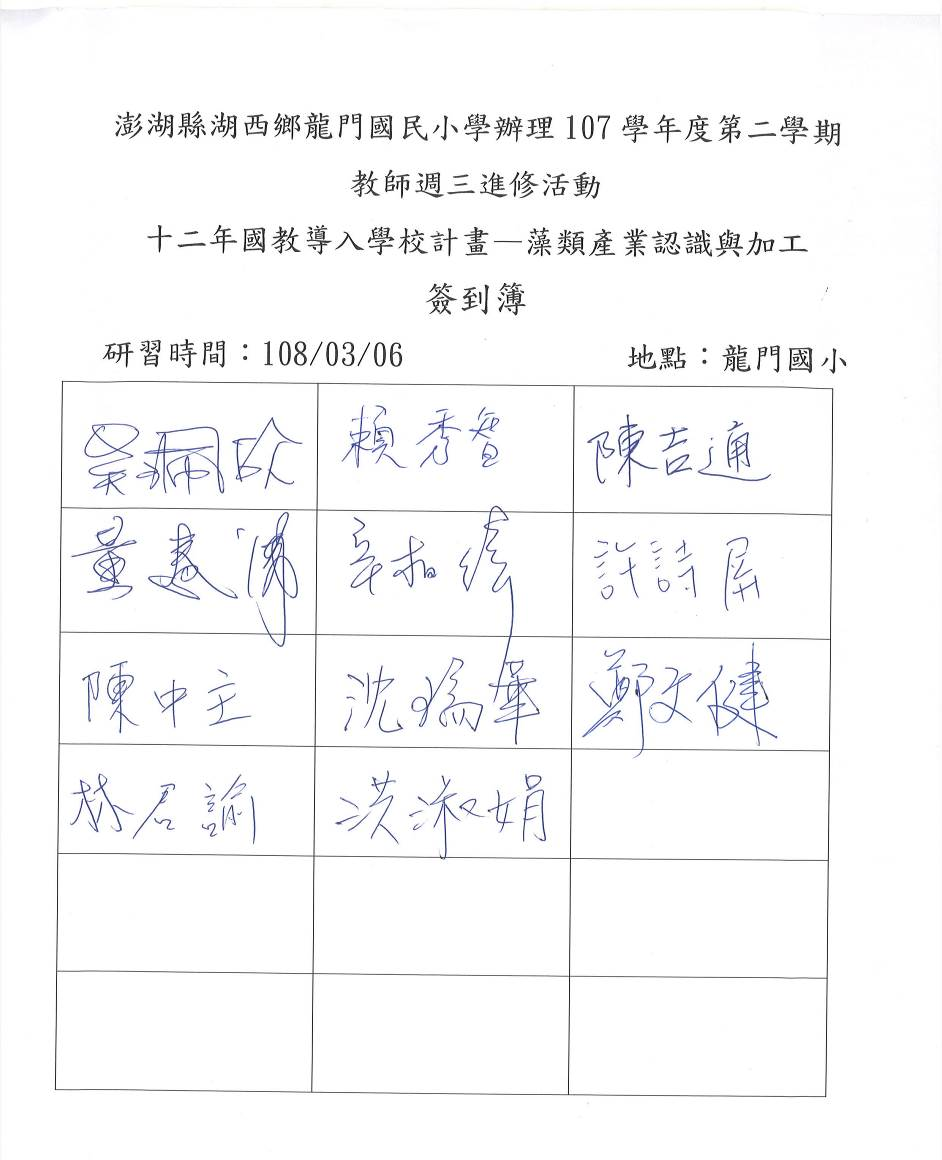 澎湖縣湖西鄉龍門國民小學辦理 107 學年度第二學期
教師週三進修活動
十二年國教導入學校計畫—藻類產業認識與加工
簽到簿
研習時間：108/03/06 地點：龍門國小
吳珮欣 賴秀智 陳吉通
黃 許詩屏
陳中主 沈瑞華 鄭文健
林君諭 洪淑娟